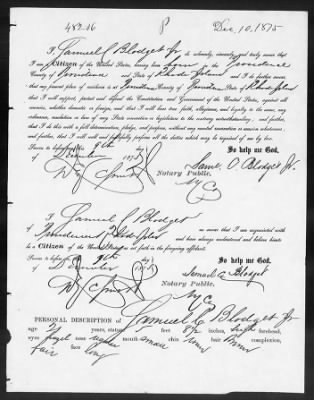 48236 8 Dec. 10, 1875
I, Samuel O Blodget Jr do solemnly, sincerely, and truly swear that
I am a Citizen of the United States, having been born in the Providence
County of Providence and State of Rhode Island and I do further swear
that my present place of residence is at Providence County of Providence State of Rhode Island
that I will support, protect and defend the Constitution and Government of the United States, against all
enemies, whether domestic or foreign, and that I will bear true faith, allegiance, and loyalty to the same, any
ordinance, resolution or law of any State convention or legislature to the contrary notwithstanding; and further,
that I do this with a full determination, pledge, and purpose, without any mental reservation or evasion whatsoever
and further, that I will well and faithfully perform all the duties which may be required of me by law.
So help me God.
Sworn to before me this 9th day
of December 1875
Saml. O. Blodget Jr.
Notary Public.
NYC
I Samuel O Blodget
of Providence Rhode Island swear that I am acquainted with
and have always understood and believe him to
be a Citizen of the United States as set forth in the foregoing affidavit.
So help me God.
Sworn to before me this 9th day
of December 1875
Samuel O Blodget
Notary Public.
NYC
PERSONAL DESCRIPTION of Samuel O Blodget Jr
age stature, 5 feet 8½ inches, high forehead,
eyes hazel nose mouth small chin hair Brown complexion,
fair face long